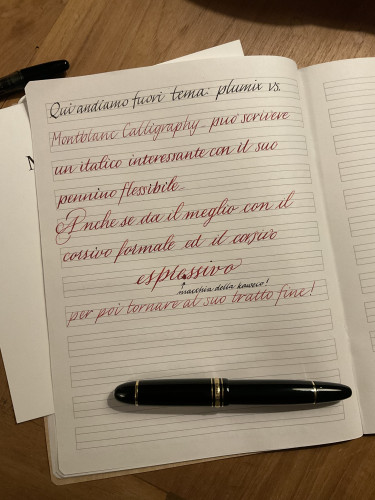 Qui andiamo fuori tema: plumix vs.
Montblanc Calligraphy. può scrivere
un italico interessante con il suo
pennino flessibile.
Anche se da il meglio con il
corsivo formale ed il corsivo
espressivo
macchia della kaweco!
per poi tornare al suo tratto fine!